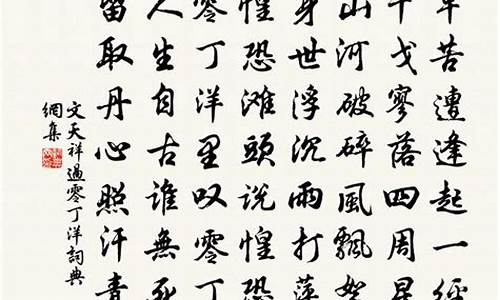 辛苦遭逢起一經
干戈寥落四周星
山河破碎風飄絮
身世浮沉雨打萍
惶恐滩頭說惶恐
零丁洋里叹零丁
人生自古誰無死
留取丹心照汗青
文天祥過零丁洋詞典
網集